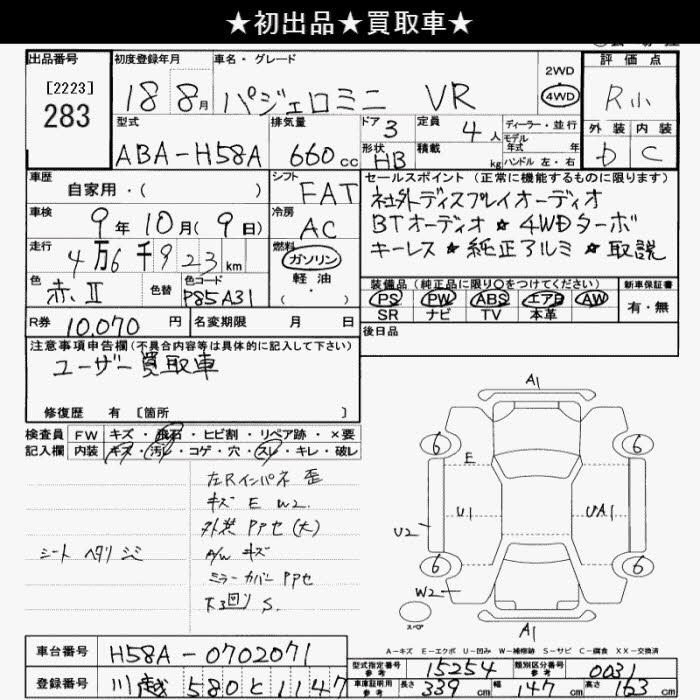 ★初出品★買取車★
出品番号
[2223]
283
初度登録年月
18年 8月
車名・グレード
パジェロミニ VR
2WD
4WD
評価点
R小
外装 内装
D C
型式
ABA-H58A
排気量
660cc
ドア 3
形状 HB
定員 4人
積載 kg
ディーラー・並行
モデル年式 年
ハンドル 左・右
車歴
自家用・( )
シフト
FAT
車検
9年 10月(9日)
冷房
AC
走行
4万6千923km
燃料
ガソリン
軽油
( ・ )
色
赤II
色替
色コード
P85A31
R券 10,070円
名変期限 月 日
セールスポイント(正常に機能するものに限ります)
社外ディスプレイオーディオ
BTオーディオ ☆ 4WDターボ
キーレス ☆ 純正アルミ ☆ 取説
装備品(純正品に限り〇をつけてください)
PS PW ABS エアB AW
SR ナビ TV 本革
新車保証書
有・無
後日品
注意事項申告欄(不具合内容等は具体的に記入して下さい)
ユーザー買取車
修復歴 有 [箇所 ]
検査員 FW キズ・飛石・ヒビ割・リペア跡・×要
記入欄 内装 キズ・汚レ・コゲ・穴・スレ・キレ・破レ
左Rインパネ 歪
キズ E W2.
外装 PPセ(大)
シート ヘタリ シミ
A/W キズ
ミラーカバー PPセ
下回り S.
A1
6 6
E
U1 UA1
U2
6 6
W2
スペア
A1
A-キズ E-エクボ U-凹み W-補修跡 S-サビ C-腐食 XX-交換済
車台番号 H58A-0702071
登録番号 川越 580 と 1147
型式指定番号 参考 15254
類別区分番号 参考 0031
車庫証明用 参考 長さ 339cm 幅 147cm 高さ 153cm